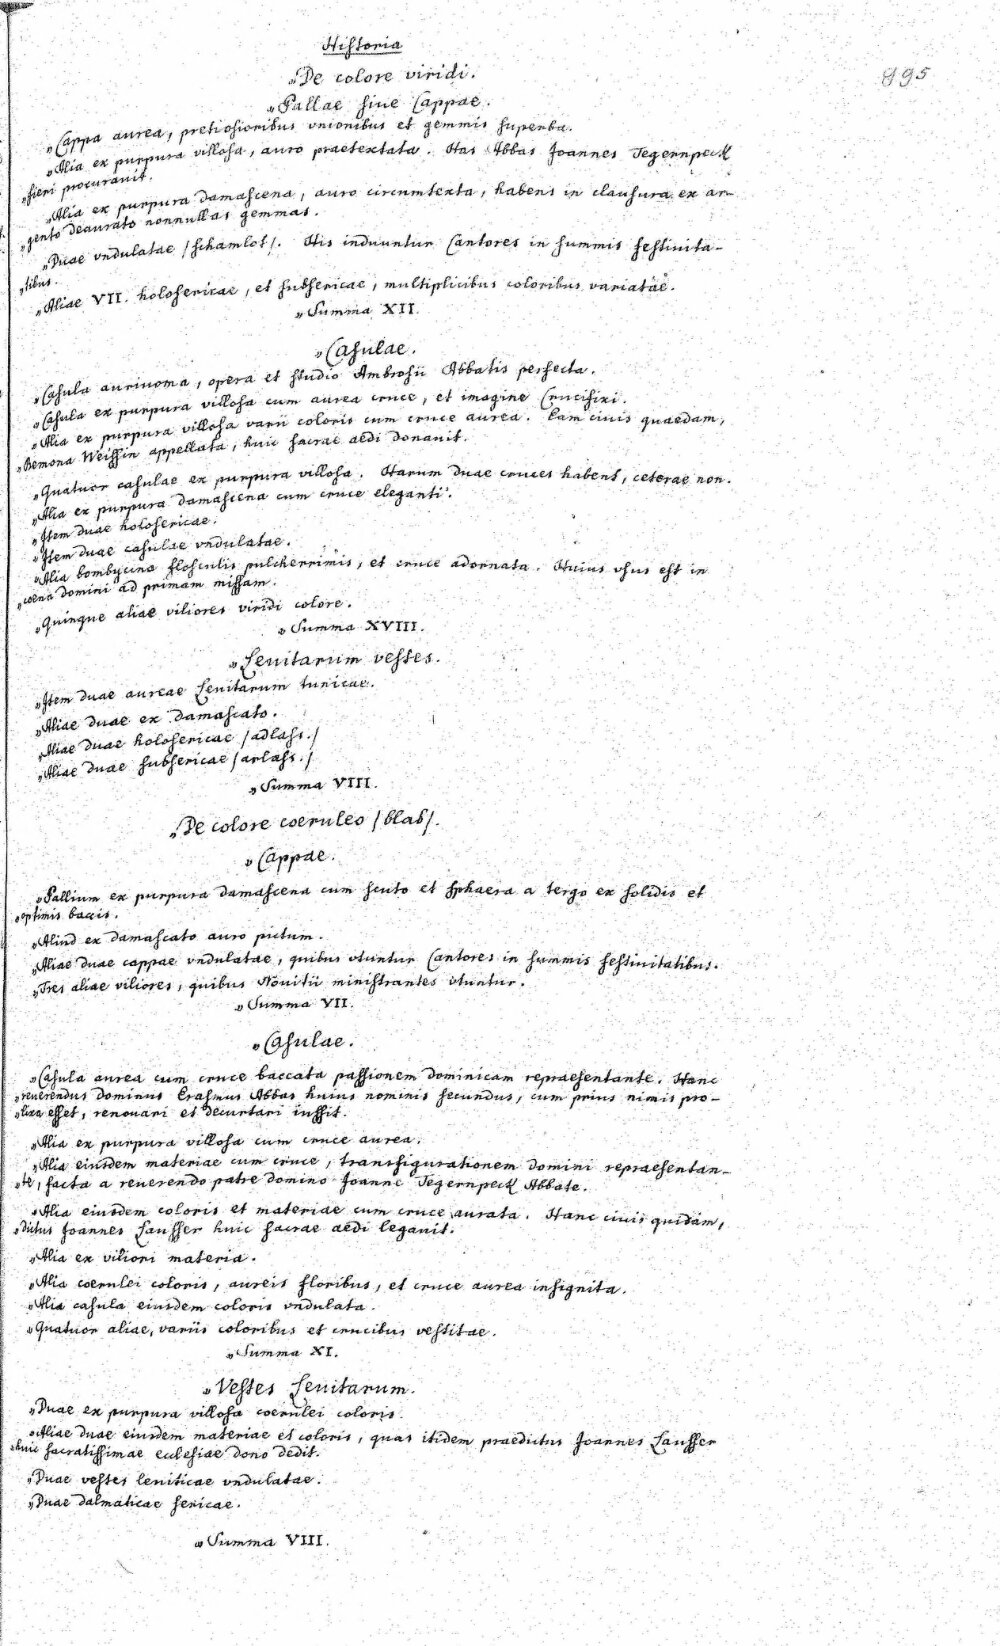 Historia
995
„De colore viridi.
„Pallae siue Cappae.
„Cappa aurea, pretiosioribus vnionibus et gemmis superba.
„Alia ex purpura villosa, auro praetextata. Has Abbas Joannes Tegernpeck
„fieri procurauit.
„Alia ex purpura damascena, auro circumtexta, habens in clausura ex ar-
„gento deaurato nonnullas gemmas.
„Duae vndulatae /schamlot/. His induuntur Cantores in summis festiuita-
„tibus.
„Aliae VII. holosericae, et subsericae, multiplicibus coloribus variatae.
„Summa XII.
„Casulae.
„Casula auriuoma, opera et studio Ambrosii Abbatis perfecta.
„Casula ex purpura villosa cum aurea cruce, et imagine Crucifixi.
„Alia ex purpura villosa varii coloris cum cruce aurea. Eam ciuis quaedam,
„Bemona Weissin appellata, huic sacrae aedi donauit.
„Quatuor casulae ex purpura villosa. Harum duae cruces habent, ceterae non.
„Alia ex purpura damascena cum cruce eleganti.
„Item duae holosericae.
„Item duae casulae vndulatae.
„Alia bombycina flosculis pulcherrimis, et cruce adornata. Huius vsus est in
„coena Domini ad primam missam.
„Quinque aliae viliores viridi colore.
„Summa XVIII.
„Leuitarum vestes.
„Item duae aureae Leuitarum tunicae.
„Aliae duae ex damascato.
„Aliae duae holosericae /adlass./
„Aliae duae subsericae /arlass./
„Summa VIII.
„De colore coeruleo /blab/.
„Cappae.
„Pallium ex purpura damascena cum scuto et sphaera a tergo ex solidis et
„optimis baccis.
„Aliud ex damascato auro pictum.
„Aliae duae cappae vndulatae, quibus vtuntur Cantores in summis festiuitatibus.
„Tres aliae viliores, quibus Nouitii ministrantes vtuntur.
„Summa VII.
„Casulae.
„Casula aurea cum cruce baccata passionem dominicam repraesentante. Hanc
„reuerendus dominus Erasmus Abbas huius nominis secundus, cum prius nimis pro-
„lixa esset, renouari et decurtari iussit.
„Alia ex purpura villosa cum cruce aurea.
„Alia eiusdem materiae cum cruce, transfigurationem domini repraesentan-
„te, facta a reuerendo patre domino Joanne Tegernpeck Abbate.
„Alia eiusdem coloris et materiae cum cruce aurata. Hanc ciuis quidam,
„dictus Joannes Lausser huic sacrae aedi legauit.
„Alia ex viliori materia.
„Alia coerulei coloris, aureis floribus, et cruce aurea insignita.
„Alia casula eiusdem coloris vndulata.
„Quatuor aliae, variis coloribus et crucibus vestitae.
„Summa XI.
„Vestes Leuitarum.
„Duae ex purpura villosa coerulei coloris.
„Aliae duae eiusdem materiae et coloris, quas itidem praedictus Joannes Lausser
„huic sacratissimae ecclesiae dono dedit.
„Duae vestes leuiticae vndulatae.
„Duae dalmaticae sericae.
„Summa VIII.